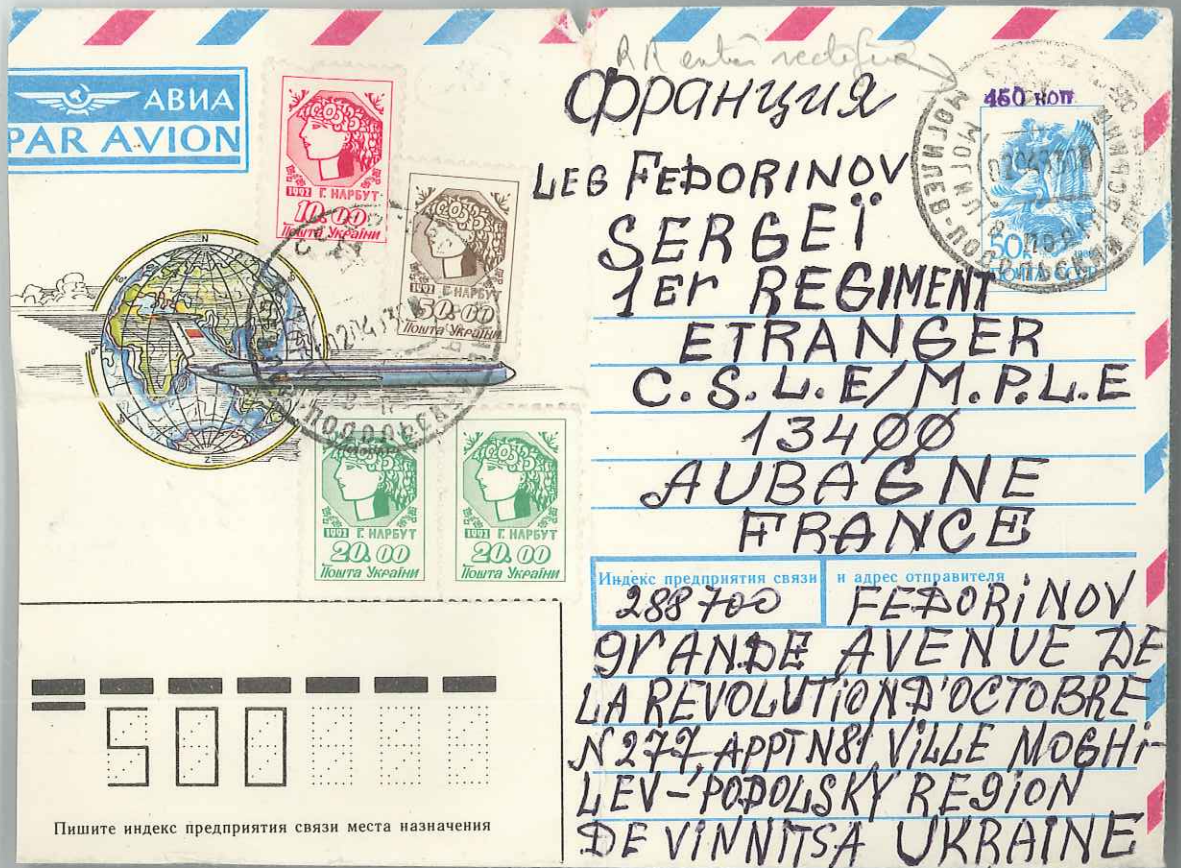 АВИА
PAR AVION
1992 Г. НАРБУТ
10.00
Пошта України
1992 Г. НАРБУТ
50.00
Пошта України
1992 Г. НАРБУТ
20.00
Пошта України
1992 Г. НАРБУТ
20.00
Пошта України
450 коп
50к
ПОЧТА СССР
МОГИЛЕВ-ПОДОЛЬСКИЙ
Франция
LEG FEDORINOV
SERGEÏ
1er REGIMENT
ETRANGER
C.S.L.E/M.P.L.E
13400
AUBAGNE
FRANCE
Индекс предприятия связи и адрес отправителя
288700 FEDORiNOV
grANDE AVENUE DE
LA REVOLUTiON D'OCTOBRE
N277, APPT N81 ViLLE MOGHi-
LEV-PODOLSKY REGiON
DE ViNNiTSA UKRAINE
500
Пишите индекс предприятия связи места назначения